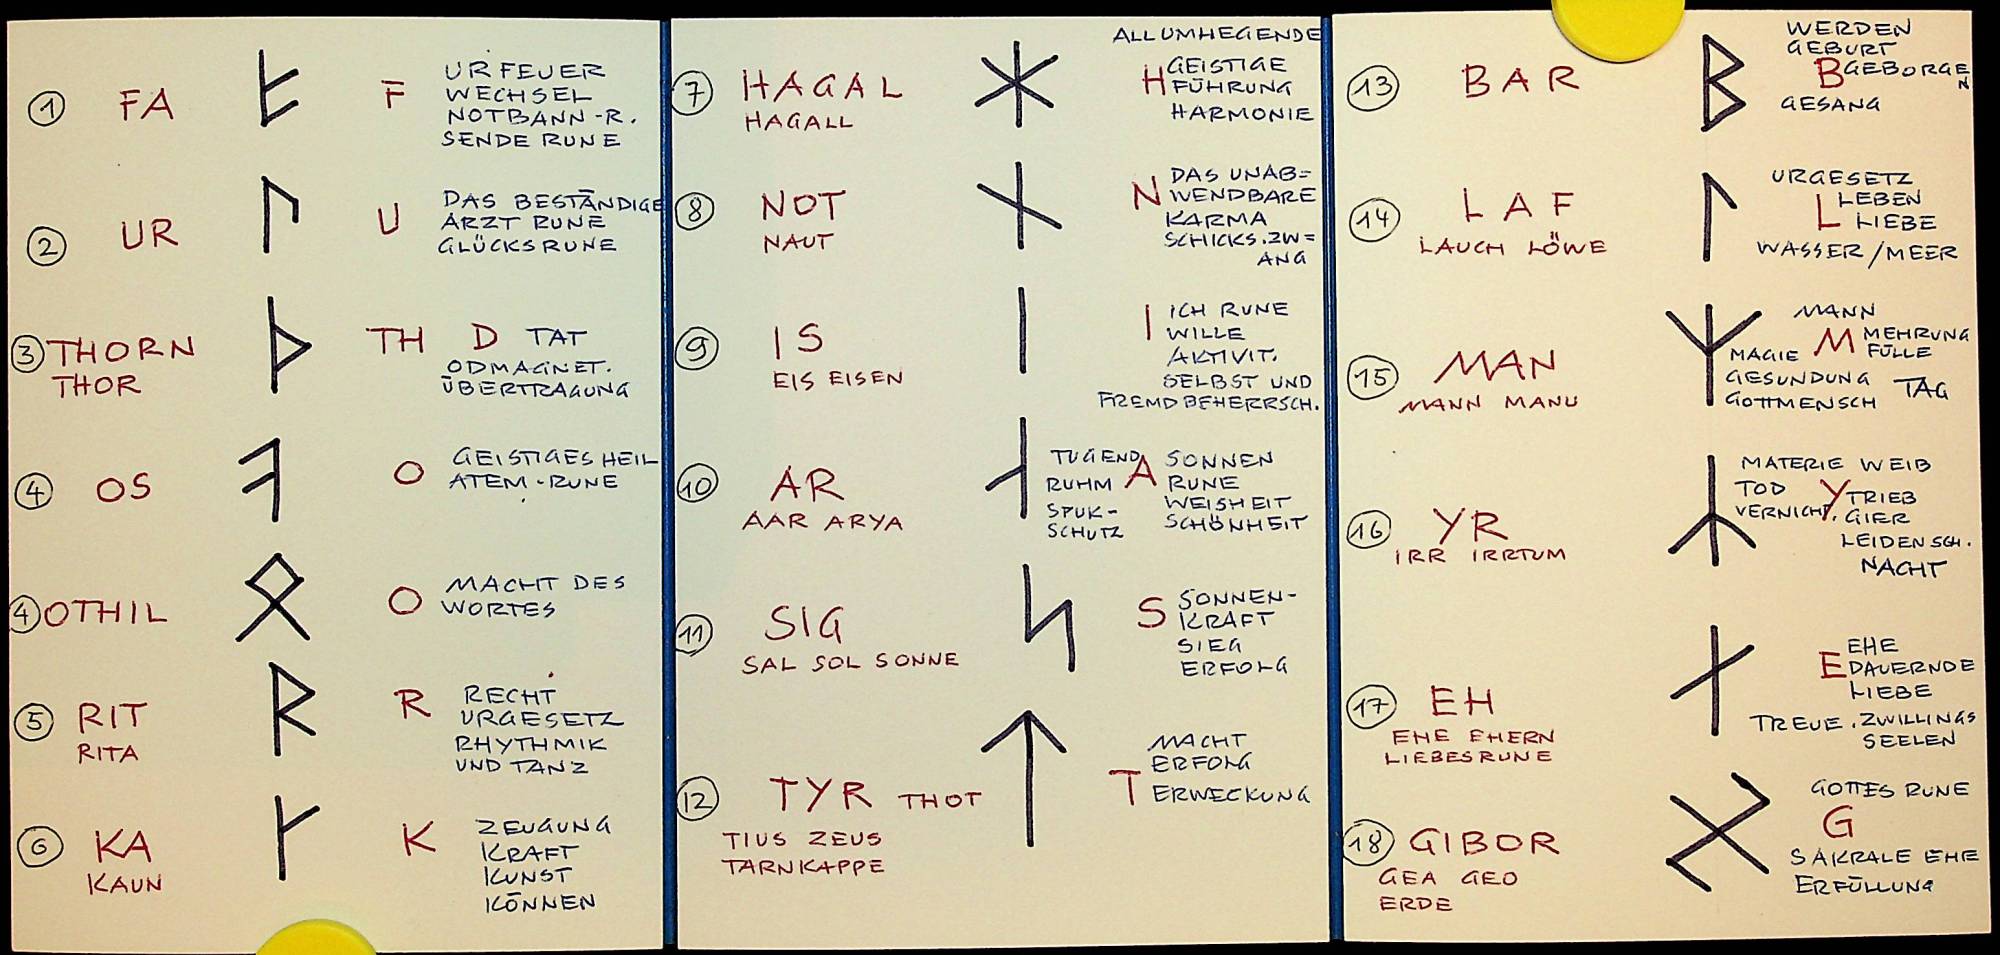 1 FA F URFEUER
WECHSEL
NOTBANN-R.
SENDE RUNE
2 UR U DAS BESTÄNDIGE
ARZT RUNE
GLÜCKSRUNE
3 THORN TH D TAT
THOR ODMAGNET.
ÜBERTRAGUNG
4 OS O GEISTIGES HEIL
ATEM-RUNE
4 OTHIL O MACHT DES
WORTES
5 RIT R RECHT
RITA URGESETZ
RHYTHMIK
UND TANZ
6 KA K ZEUGUNG
KAUN KRAFT
KUNST
KÖNNEN
ALLUMHEGENDE
7 HAGAL H GEISTIGE
HAGALL FÜHRUNG
HARMONIE
8 NOT N DAS UNAB=
NAUT WENDBARE
KARMA
SCHICKS.ZW=
ANG
9 IS I ICH RUNE
EIS EISEN WILLE
AKTIVIT.
SELBST UND
FREMDBEHERRSCH.
10 AR TUGEND A SONNEN
AAR ARYA RUHM RUNE
SPUK- WEISHEIT
SCHUTZ SCHÖNHEIT
11 SIG S SONNEN-
SAL SOL SONNE KRAFT
SIEG
ERFOLG
12 TYR THOT T MACHT
TIUS ZEUS ERFOLG
TARNKAPPE ERWECKUNG
13 BAR WERDEN
GEBURT
B GEBORGEN
GESANG
14 LAF URGESETZ
LAUCH LÖWE L LEBEN
LIEBE
WASSER/MEER
15 MAN MANN
MANN MANU M MEHRUNG
FÜLLE
MAGIE
GESUNDUNG TAG
GOTTMENSCH
16 YR MATERIE WEIB
IRR IRRTUM TOD Y TRIEB
VERNICHT. GIER
LEIDENSCH.
NACHT
17 EH EHE
EHE EHERN E DAUERNDE
LIEBESRUNE LIEBE
TREUE.ZWILLINGS
SEELEN
18 GIBOR GOTTES RUNE
GEA GEO G
ERDE SAKRALE EHE
ERFÜLLUNG